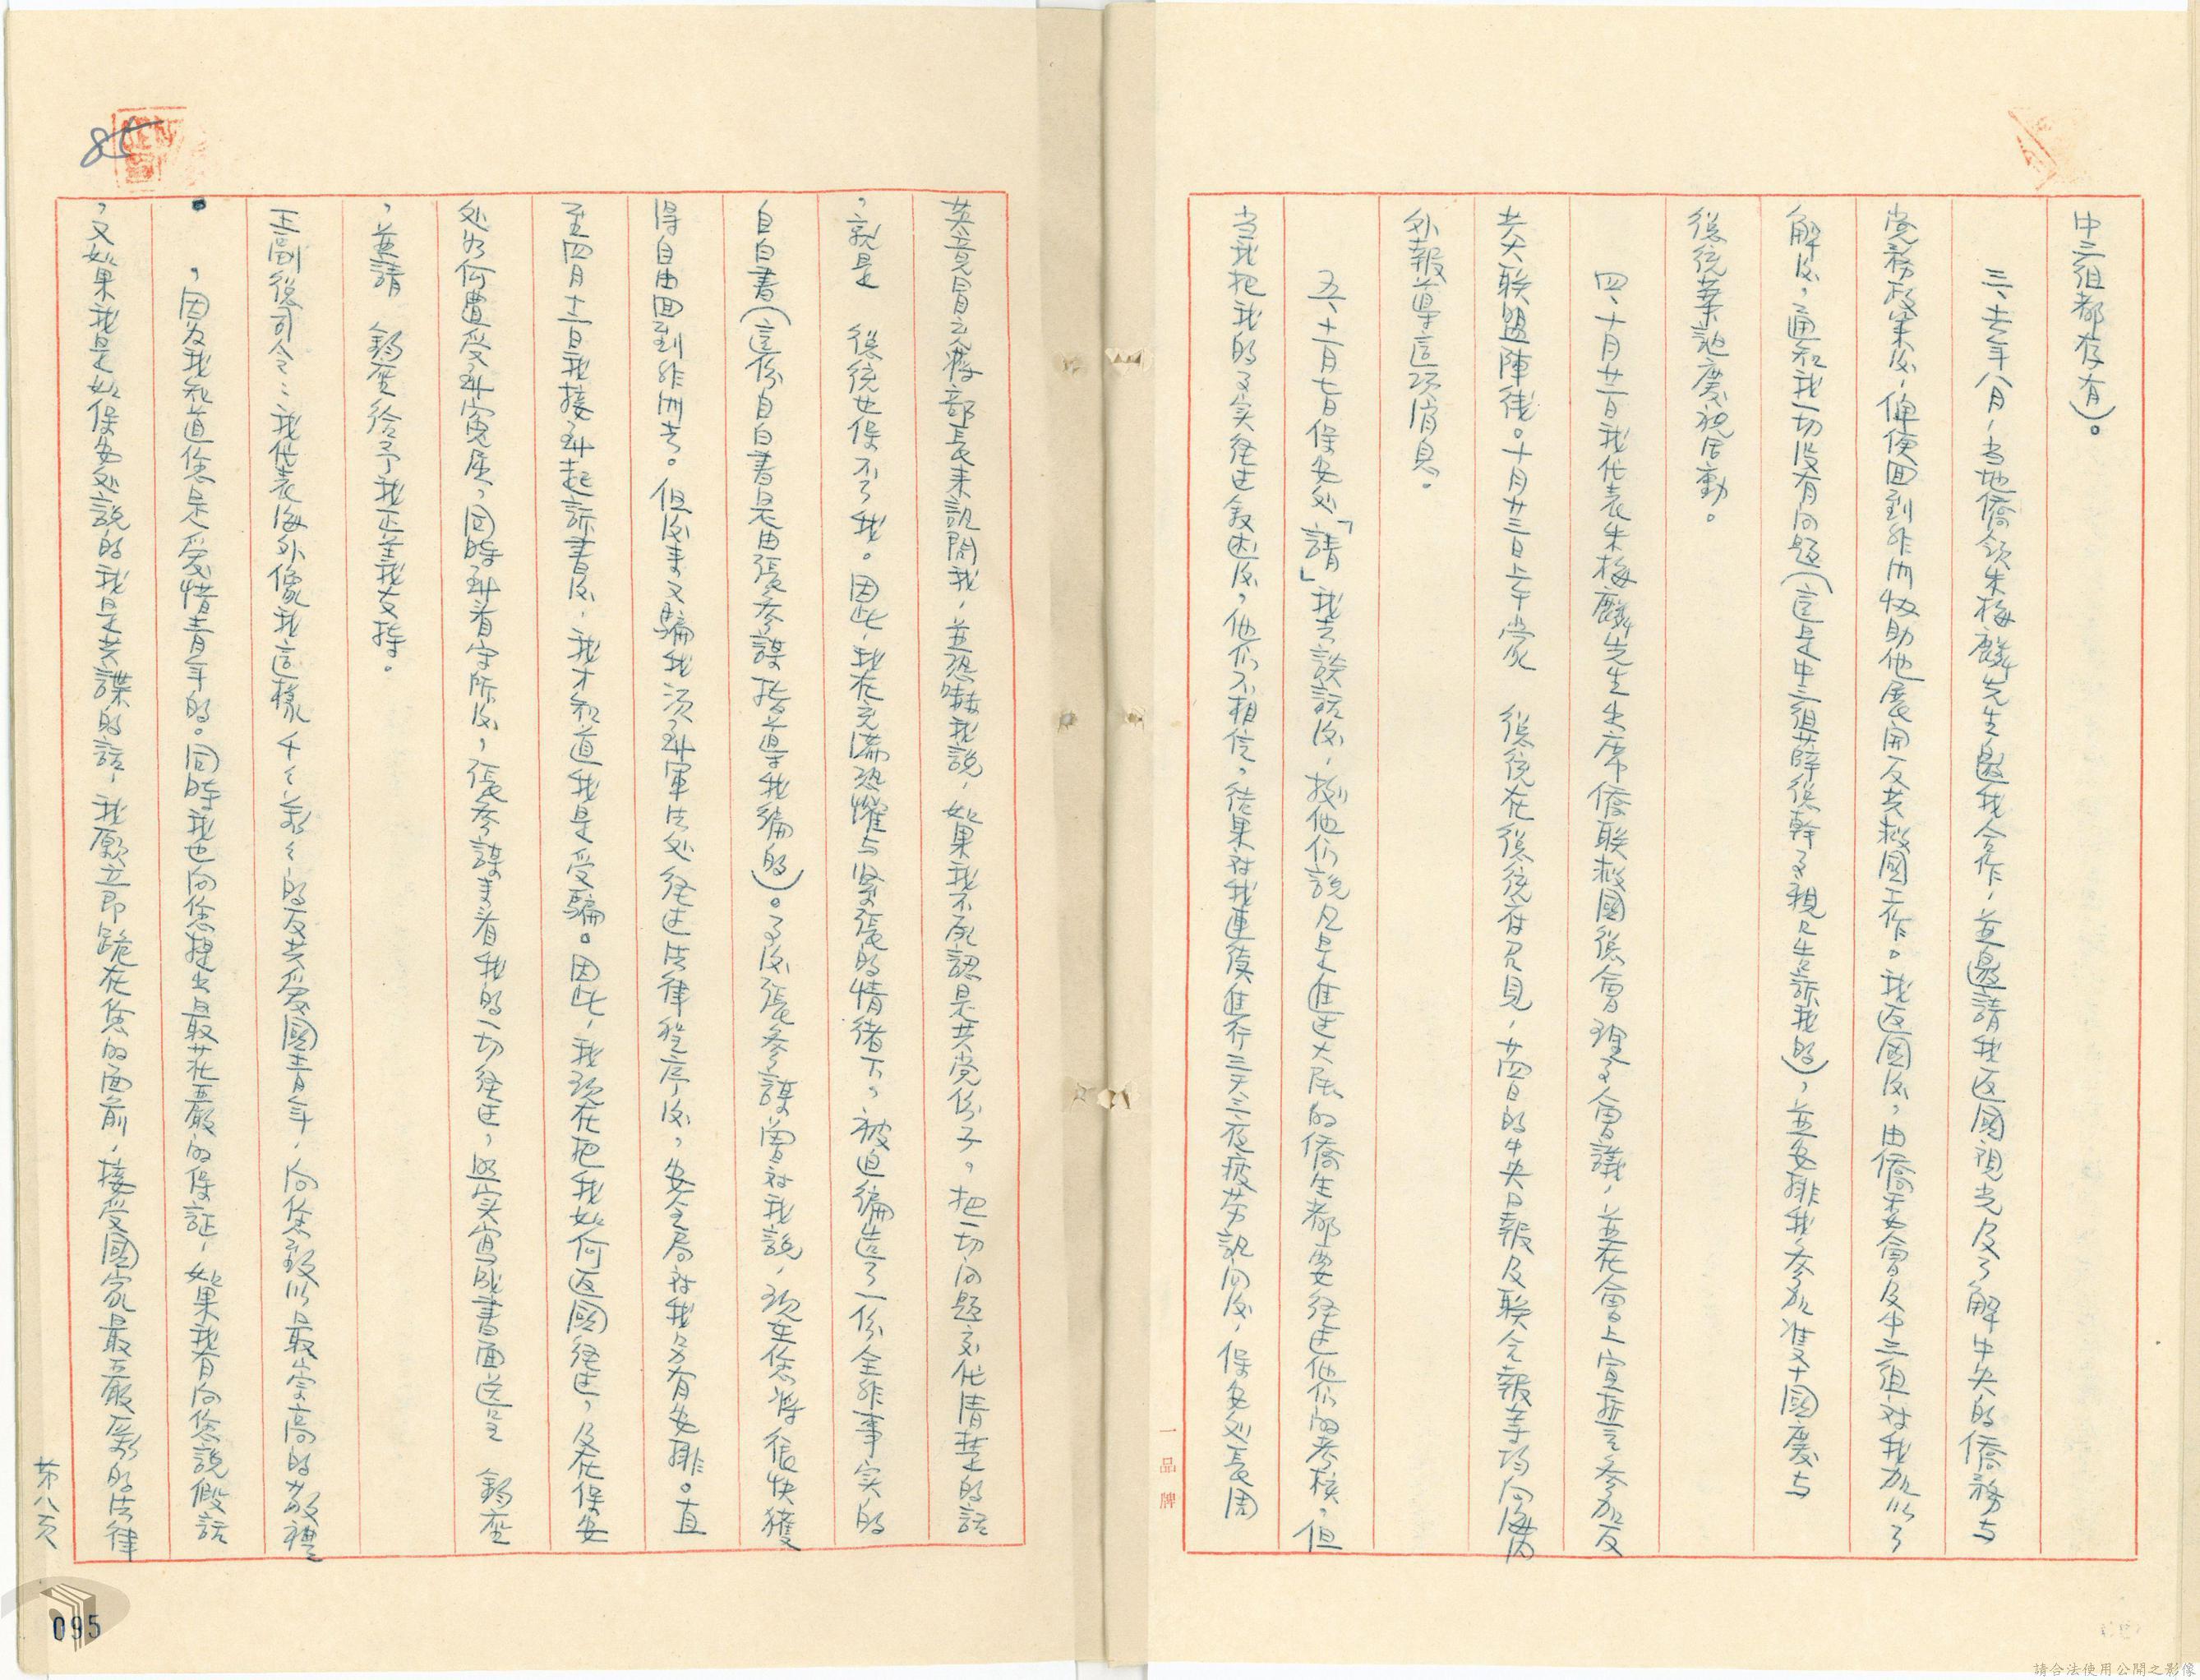 中三組都存有）。
三、去年八月，当地僑領朱梅麟先生邀我合作，並邀請我返國視光及了解中央的僑務与
党務政策后，俾便回到非洲协助他展開反共救國工作。我返國后，由僑委會及中三組对我加以了
解后，通知我一切没有问题（這是中三組薛總幹事親口告訴我的），並安排我参加雙十國慶与
總統華誕慶祝活動。
四、十月廿二日我代表朱梅麟先生出席僑联救國總會理事會議，並在會上宣誓参加反
共大联盟陣线。十月廿三日上午蒙　總統在總統府召見，廿四日的中央日報及联合報等均向海内
外報導這項消息。
五、十一月七日保安处「請」我去談話后，据他们說凡是進过大陆的僑生都要经过他们的考核，但
当我把我的事实经过叙述后，他们不相信，结果对我連續進行三天三夜疲劳訊问后，保安处長周
英竟冒充蔣部長来訊問我，並恐嚇我說，如果我不承認是共党份子，把一切问題交代清楚的話
，就是　總統也保不了我。因此，我在充满恐懼与紧張的情緒下，被迫編造了一份全非事实的
自白書（這份自白書是由張参謀指導我編的）。事后張参謀曾对我說，現在您将很快獲
得自由回到非洲去。但后来又騙我須到軍法处经过法律程序后，安全局对我另有安排。直
至四月十一日我接到起訴書后，我才知道我是受騙。因此，我現在把我如何返國经过，及在保安
处如何遭受到寃屈，同時到看守所后，張参謀来看我的一切经过，照实寫成書面送呈　鈞座
，並請　鈞座給予我正義支持。
王副總司令：我代表海外像我這樣千々萬々的反共爱國青年，向您致以最崇高的敬禮
，因为我知道您是爱惜青年的。同時我也向您提出最荘严的保証，如果我有向您說假話
，又如果我是如保安处說的我是共諜的話，我愿立即跪在您的面前，接受國家最严厲的法律
第八页
85
095
一品牌
請合法使用公開之影像